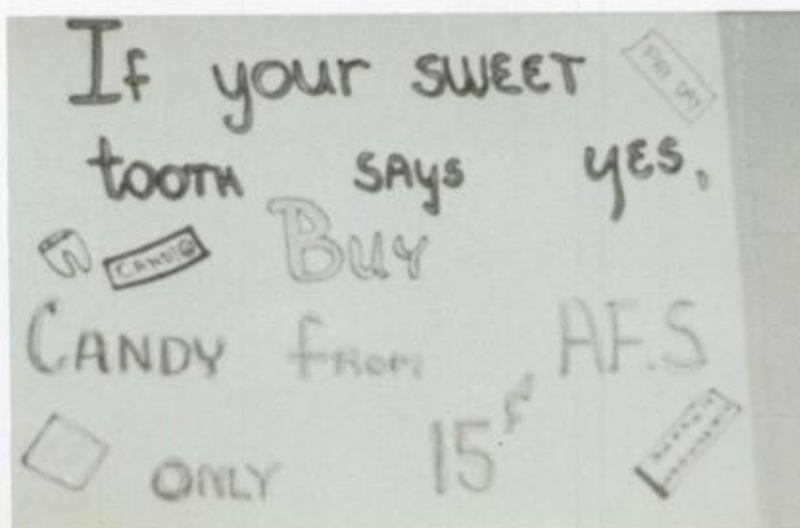 If your SWEET
PAY DAY
tooTH SAYS YES,
CANDY
Buy
CANDY from A.F.S
ONLY 15¢